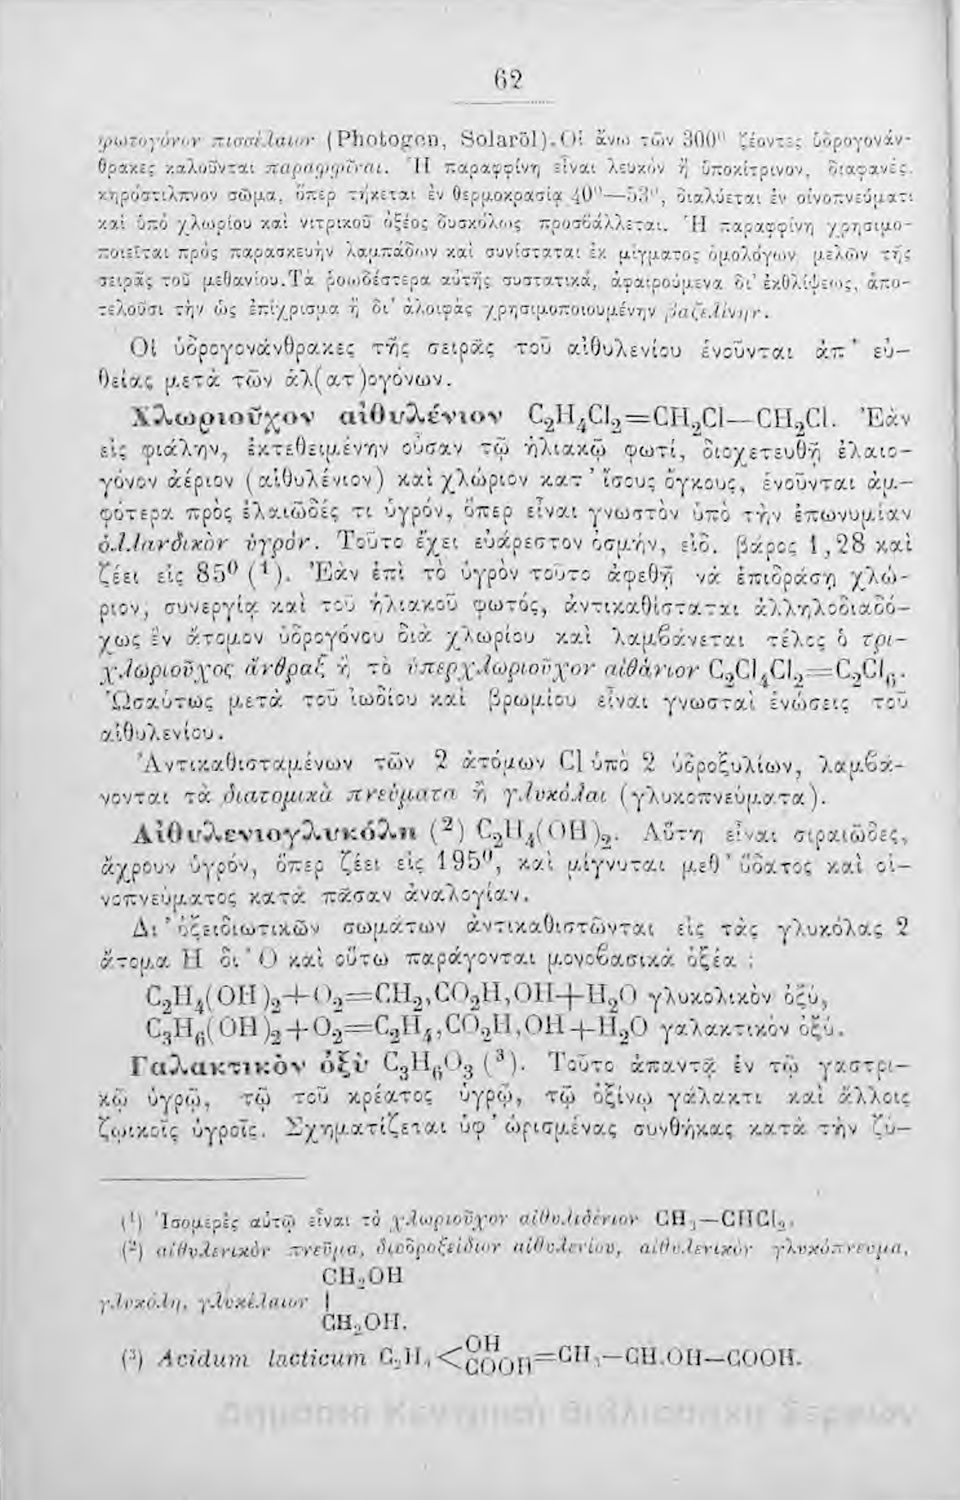 62
φωτογόνον πισσέλαιον (Photogen, Solaröl). Οἱ ἄνω τῶν 300⁰ ζέοντες ὑδρογονάν-
θρακες καλοῦνται παραφφῖναι. Ἡ παραφφίνη εἶναι λευκόν ἢ ὑποκίτρινον, διαφανές,
κηρόστιλπνον σῶμα, ὅπερ τήκεται ἐν θερμοκρασίᾳ 40⁰—53⁰, διαλύεται ἐν οἰνοπνεύματι
καὶ ὑπὸ χλωρίου καὶ νιτρικοῦ ὀξέος δυσκόλως προσβάλλεται. Ἡ παραφφίνη χρησιμο-
ποιεῖται πρὸς παρασκευὴν λαμπάδων καὶ συνίσταται ἐκ μίγματος ὁμολόγων μελῶν τῆς
σειρᾶς τοῦ μεθανίου. Τὰ ῥοωδέστερα αὐτῆς συστατικά, ἀφαιρούμενα δι’ ἐκθλίψεως, ἀπο-
τελοῦσι τὴν ὡς ἐπίχρισμα ἢ δι’ ἀλοιφὰς χρησιμοποιουμένην βαζελίνην.
Οἱ ὑδρογονάνθρακες τῆς σειρᾶς τοῦ αἰθυλενίου ἑνοῦνται ἀπ’ εὐ-
θείας μετὰ τῶν ἁλ(ατ)ογόνων.
Χλωριοῦχον αἰθυλένιον C₂H₄Cl₂=CH₂Cl—CH₂Cl. Ἐὰν
εἰς φιάλην, ἐκτεθειμένην οὖσαν τῷ ἡλιακῷ φωτί, διοχετευθῇ ἐλαιο-
γόνον ἀέριον (αἰθυλένιον) καὶ χλώριον κατ’ ἴσους ὄγκους, ἑνοῦνται ἀμ-
φότερα πρὸς ἐλαιῶδές τι ὑγρόν, ὅπερ εἶναι γνωστὸν ὑπὸ τὴν ἐπωνυμίαν
ὁλλανδικὸν ὑγρόν. Τοῦτο ἔχει εὐάρεστον ὀσμήν, εἰδ. βάρος 1,28 καὶ
ζέει εἰς 85⁰ (¹). Ἐὰν ἐπὶ τὸ ὑγρὸν τοῦτο ἀφεθῇ νὰ ἐπιδράσῃ χλώ-
ριον, συνεργίᾳ καὶ τοῦ ἡλιακοῦ φωτός, ἀντικαθίσταται ἀλληλοδιαδό-
χως ἓν ἄτομον ὑδρογόνου διὰ χλωρίου καὶ λαμβάνεται τέλος ὁ τρι-
χλωριοῦχος ἄνθραξ ἢ τὸ ὑπερχλωριοῦχον αἰθάνιον C₂Cl₄Cl₂=C₂Cl₆.
Ὡσαύτως μετὰ τοῦ ἰωδίου καὶ βρωμίου εἶναι γνωσταὶ ἑνώσεις τοῦ
αἰθυλενίου.
Ἀντικαθισταμένων τῶν 2 ἀτόμων Cl ὑπὸ 2 ὑδροξυλίων, λαμβά-
νονται τὰ διατομικὰ πνεύματα ἢ γλυκόλαι (γλυκοπνεύματα).
Αἰθυλενιογλυκόλη (²) C₂H₄(OH)₂. Αὕτη εἶναι σιραιῶδες,
ἄχρουν ὑγρόν, ὅπερ ζέει εἰς 195⁰, καὶ μίγνυται μεθ’ ὕδατος καὶ οἰ-
νοπνεύματος κατὰ πᾶσαν ἀναλογίαν.
Δι’ ὀξειδιωτικῶν σωμάτων ἀντικαθιστῶνται εἰς τὰς γλυκόλας 2
ἄτομα H δι’ O καὶ οὕτω παράγονται μονοβασικὰ ὀξέα :
C₂H₄(OH)₂+O₂=CH₂,CO₂H,OH+H₂O γλυκολικὸν ὀξύ,
C₃H₆(OH)₂+O₂=C₂H₄,CO₂H,OH+H₂O γαλακτικόν ὀξύ.
Γαλακτικὸν ὀξὺ C₃H₆O₃ (³). Τοῦτο ἀπαντᾷ ἐν τῷ γαστρι-
κῷ ὑγρῷ, τῷ τοῦ κρέατος ὑγρῷ, τῷ ὀξίνῳ γάλακτι καὶ ἄλλοις
ζωικοῖς ὑγροῖς. Σχηματίζεται ὑφ’ ὡρισμένας συνθήκας κατὰ τὴν ζύ-
(¹) Ἰσομερὲς αὐτῷ εἶναι τὸ χλωριοῦχον αἰθυλιδένιον CH₃—CHCl₂.
(²) αἰθυλενικὸν πνεῦμα, διυδροξείδιον αἰθυλενίου, αἰθυλενικὸν γλυκόπνευμα,
CH₂OH
γλυκόλη, γλυκέλαιον |
CH₂OH.
(³) Acidum lacticum C₂H₄<OH COOH=CH₃—CH.OH—COOH.
Δημόσια Κεντρική Βιβλιοθήκη Σερρών